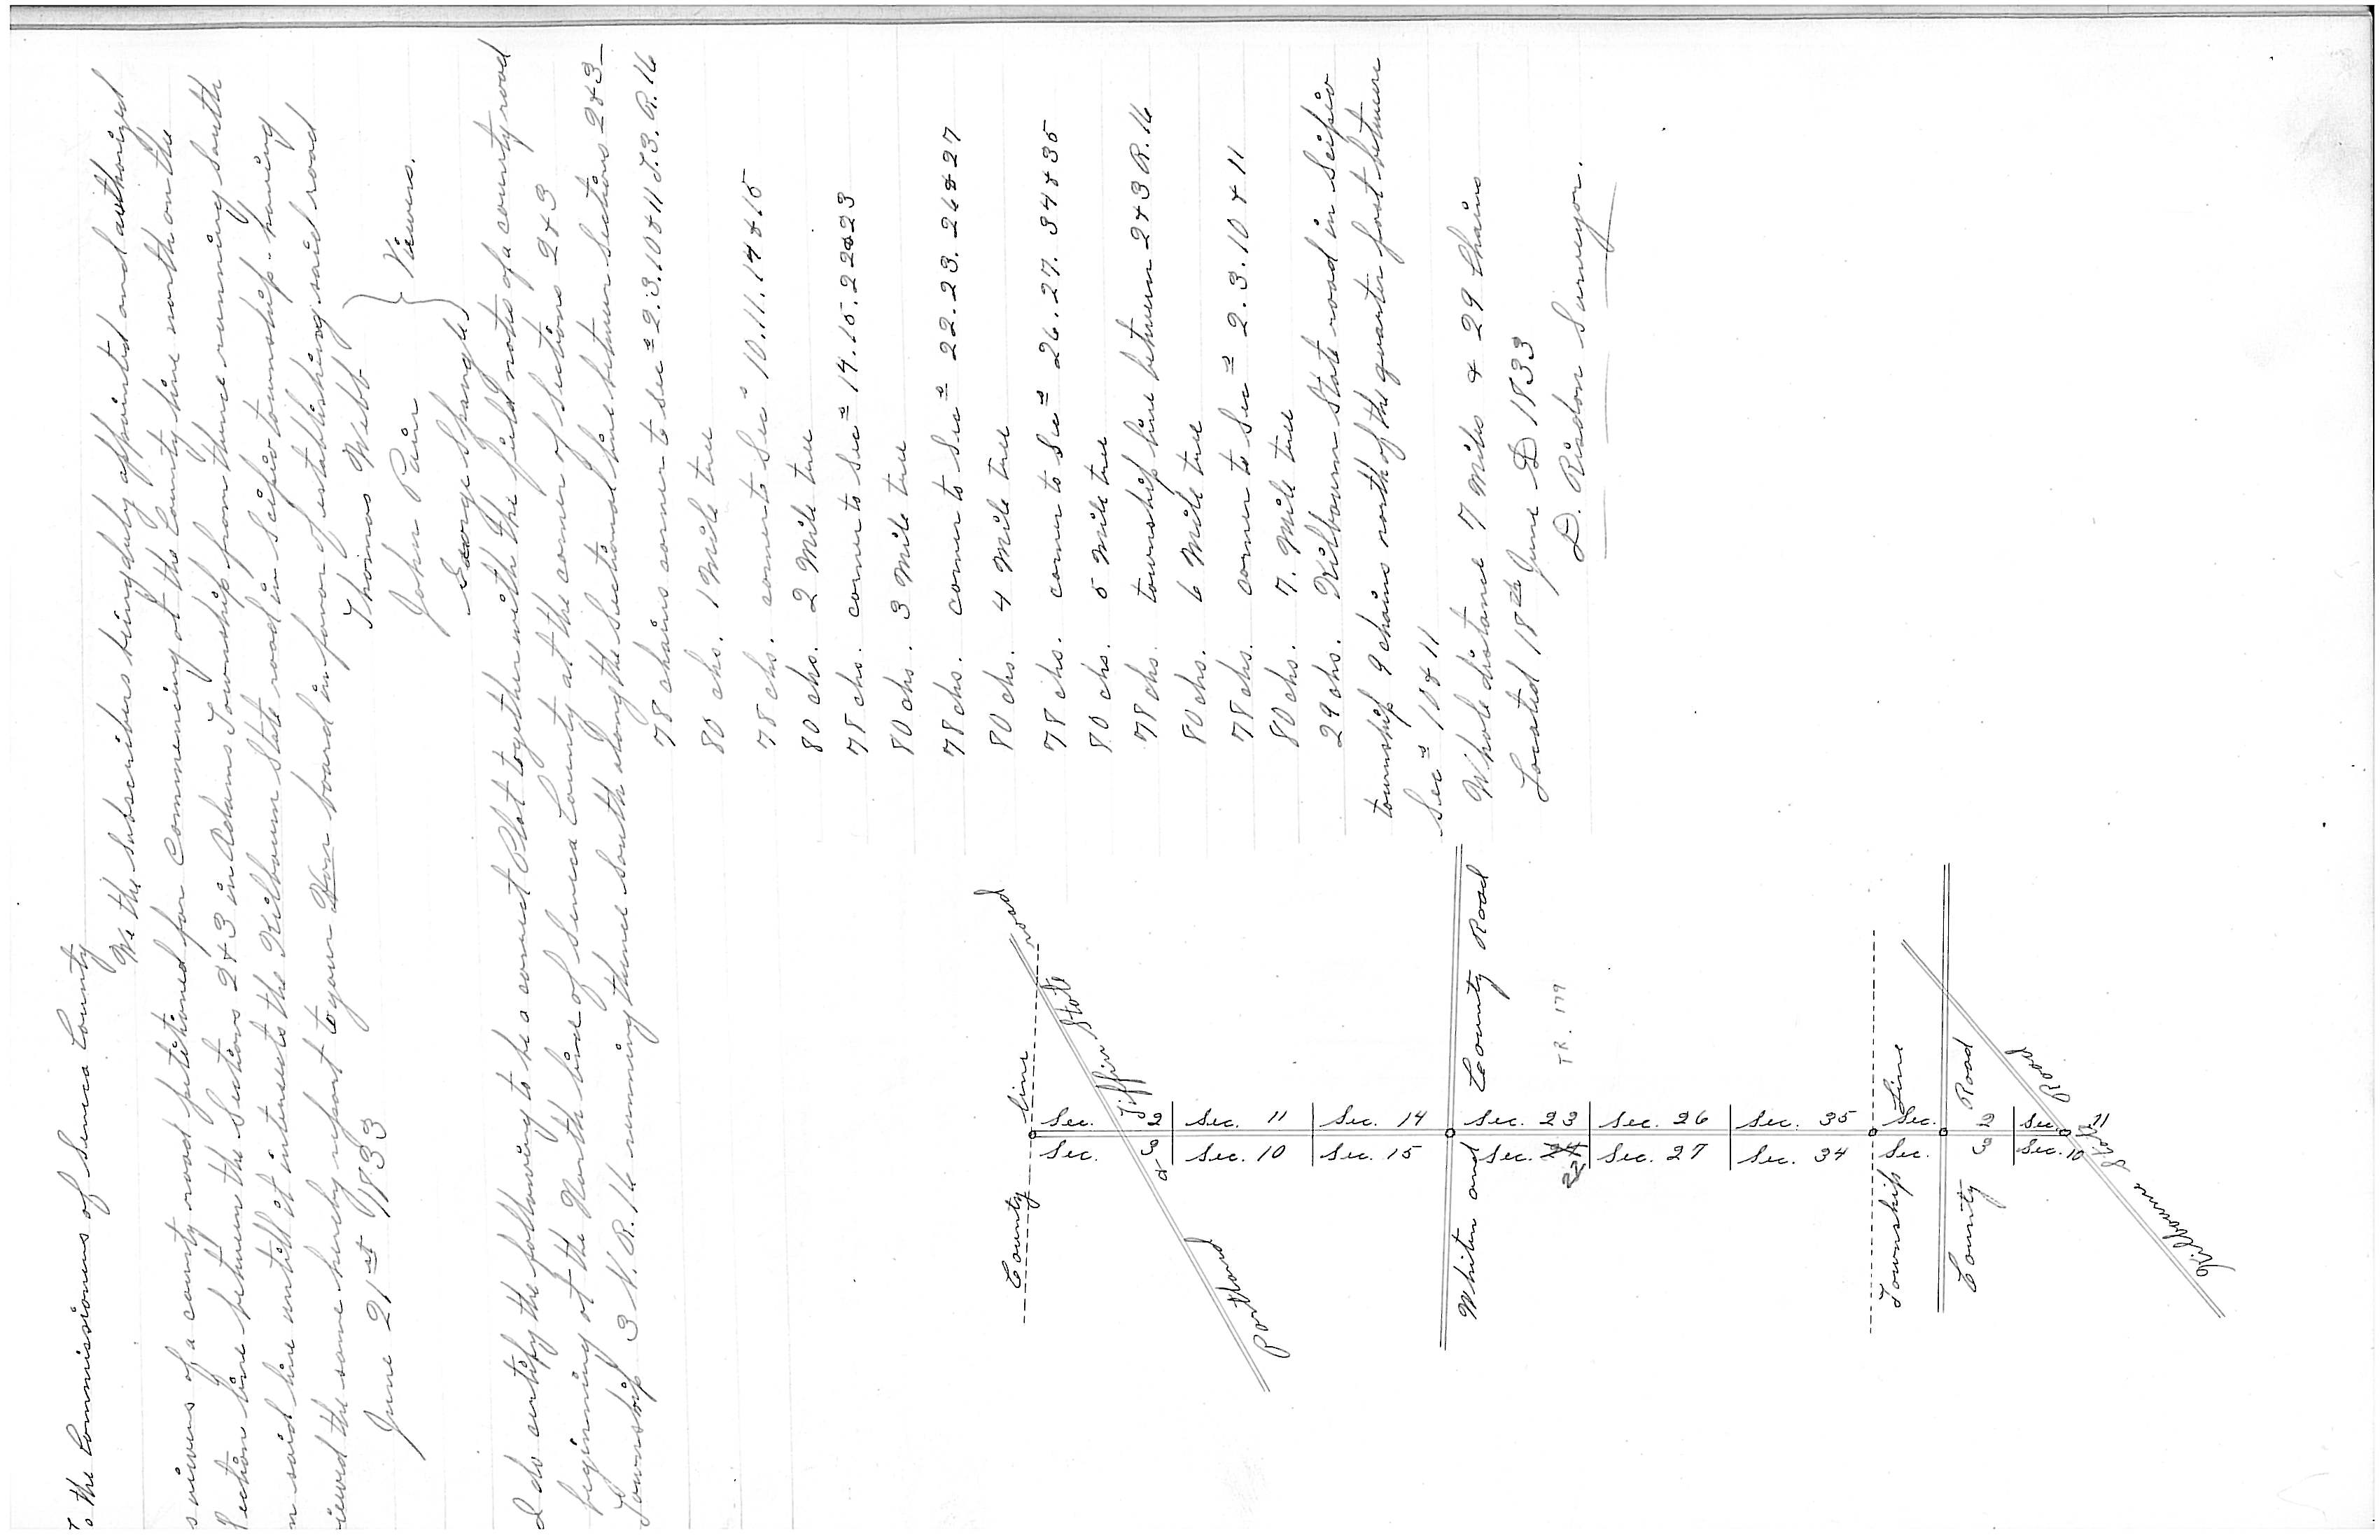 To the Commissioners of Seneca County
We the subscribers being duly appointed and authorized
s viewers of a county road petitioned for Commencing at the County line north on the
Section line between the Sections 2 & 3 in Adams Township from thence running South
n said line untill it intersects the Kilbourn State road in Scipio township. having
viewed the same hereby report to your Hon board in favor of establishing said road
June 21st 1833
Thomas Webb
John Paine
George Spangle
Viewers.
I do certify the following to be a correct Plat together with the field notes of a county road
beginning at the North line of Seneca County at the corner of Sections 2 & 3
Township 3 N. R. 16 running thence South along the Sectional line between Sections 2 & 3
78 chains corner to Secs 2.3.10 & 11 T.3. R. 16
80 chs. 1 Mile tree
78 chs. corner to Secs 10.11.14 & 15
80 chs. 2 Mile tree
78 chs. corner to Secs 14.15.22 & 23
80 chs. 3 Mile tree
78 chs. corner to Secs 22.23.26 & 27
80 chs. 4 Mile tree
78 chs. corner to Secs 26.27.34 & 35
80 chs. 5 Mile tree
78 chs. township line between 2 & 3 R. 16
80 chs. 6 Mile tree
78 chs. corner to Secs 2.3.10 & 11
80 chs. 7. Mile tree
29 chs. Kilbourn State road in Scipio
township 9 chains north of the quarter post between
Secs 10 & 11
Whole distance 7 Miles & 29 Chains
Located 18th June D 1833
D. Risdon Surveyor.
County line
Portland & Tiffin State road
Sec. 2
Sec. 3
Sec. 11
Sec. 10
Sec. 14
Sec. 15
Whiten and County Road
TR. 179
Sec. 23
Sec. 22
Sec. 26
Sec. 27
Sec. 35
Sec. 34
Township Line
Sec. 2
Sec. 3
County Road
Sec 11
Sec. 10
Kilbourn State Road